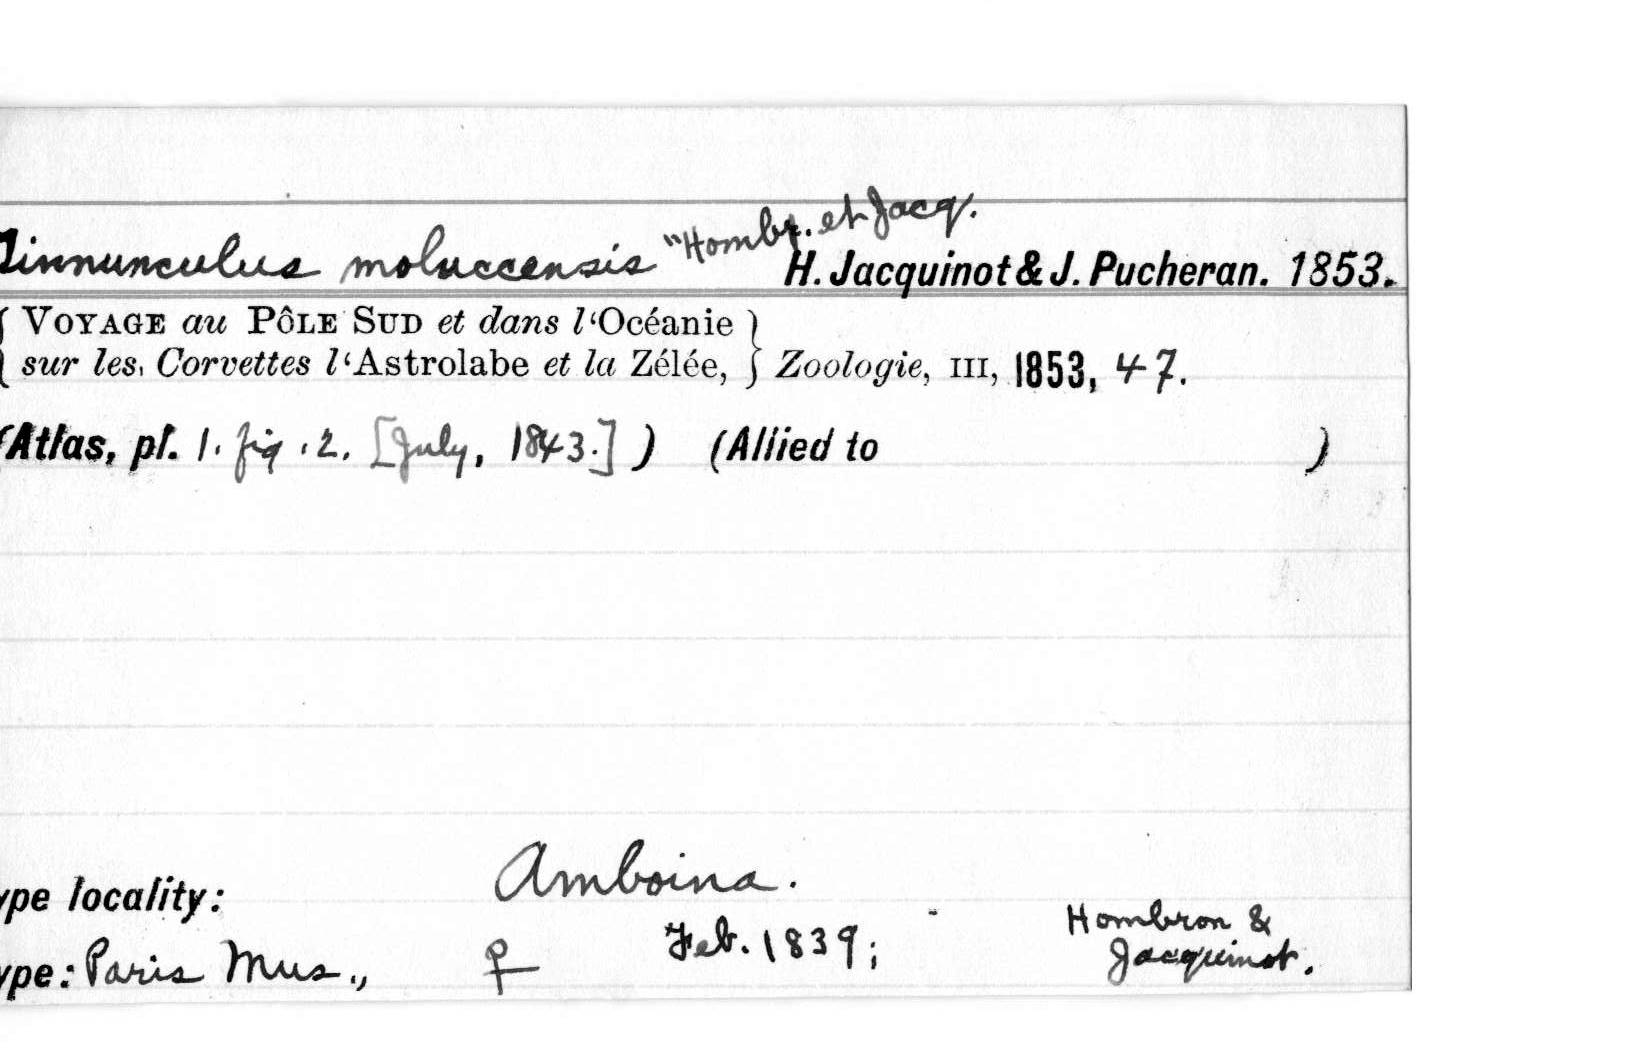 Tinnunculus moluccensis "Hombr. et Jacq.
H. Jacquinot & J. Pucheran. 1853.
{ VOYAGE au PÔLE SUD et dans l‘Océanie }
{ sur les, Corvettes l‘Astrolabe et la Zélée, } Zoologie, III, 1853, 47.
(Atlas, pl. 1. fig. 2. [July, 1843.] ) (Allied to )
ype locality: Amboina.
ype: Paris Mus., ♀ Feb. 1839; Hombron &
Jacquinot.